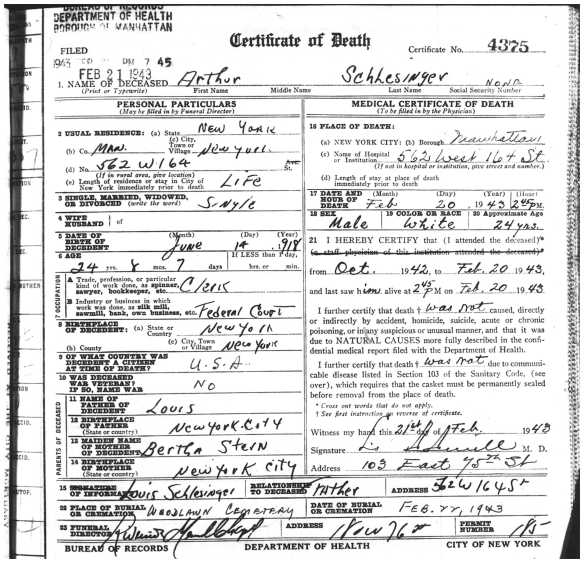 BUREAU OF RECORDS
DEPARTMENT OF HEALTH
BOROUGH OF MANHATTAN
FILED
1943 FEB PM 7 45
FEB 21 1943
Certificate of Death
Certificate No. 4375
1. NAME OF DECEASED Arthur Schlesinger NONE
(Print or Typewrite) First Name Middle Name Last Name Social Security Number
PERSONAL PARTICULARS
(May be filled in by Funeral Director)
2 USUAL RESIDENCE: (a) State New York
(b) Co. MAN. (c) City, Town or Village New York
(d) No. 562 W 164 Ave. St.
(If in rural area, give location)
(e) Length of residence or stay in City of New York immediately prior to death LIFE
3 SINGLE, MARRIED, WIDOWED, OR DIVORCED (write the word) Single
4 WIFE HUSBAND of
5 DATE OF BIRTH OF DECEDENT (Month) (Day) (Year) June 14, 918
6 AGE 24 yrs. 8 mos. 7 days If LESS than 1 day, hrs. or min.
7 OCCUPATION
A Trade, profession, or particular kind of work done, as spinner, sawyer, bookkeeper, etc. Clerk
B Industry or business in which work was done, as silk mill, sawmill, bank, own business, etc. Federal Court
8 BIRTHPLACE OF DECEDENT (a) State or Country New York
(b) County (c) City, Town or Village New York
9 OF WHAT COUNTRY WAS DECEDENT A CITIZEN AT TIME OF DEATH? U.S.A
10 WAS DECEASED WAR VETERAN? IF SO, NAME WAR NO
PARENTS OF DECEASED
11 NAME OF FATHER OF DECEDENT Louis
12 BIRTHPLACE OF FATHER (State or country) New York City
13 MAIDEN NAME OF MOTHER OF DECEDENT Bertha Stern
14 BIRTHPLACE OF MOTHER (State or country) New York City
MEDICAL CERTIFICATE OF DEATH
(To be filled in by the Physician)
16 PLACE OF DEATH:
(a) NEW YORK CITY: (b) Borough Manhattan
(c) Name of Hospital or Institution 562 West 164 St.
(If not in hospital or institution, give street and number.)
(d) Length of stay at place of death immediately prior to death
17 DATE AND HOUR OF DEATH (Month) (Day) (Year) (Hour) Feb 20 1943 2:45 PM.
18 SEX Male 19 COLOR OR RACE White 20 Approximate Age 24 yrs.
21 I HEREBY CERTIFY that (I attended the deceased)*
(a staff physician of this institution attended the deceased)*
from Oct. 1942, to Feb. 20 1943,
and last saw him alive at 2:45 PM on Feb. 20 1943.
I further certify that death † was not caused, directly
or indirectly by accident, homicide, suicide, acute or chronic
poisoning, or in any suspicious or unusual manner, and that it was
due to NATURAL CAUSES more fully described in the confi-
dential medical report filed with the Department of Health.
I further certify that death † was not due to communic-
able disease listed in Section 103 of the Sanitary Code, (see
over), which requires that the casket must be permanently sealed
before removal from the place of death.
* Cross out words that do not apply.
† See first instruction on reverse of certificate.
Witness my hand this 21st day of Feb. 1943
Signature M. D.
Address 103 East 75th St
15 SIGNATURE OF INFORMANT Louis Schlesinger RELATIONSHIP TO DECEASED Father ADDRESS 562 W 164 St
22 PLACE OF BURIAL OR CREMATION WOODLAWN CEMETERY DATE OF BURIAL OR CREMATION FEB. 22, 1943
23 FUNERAL DIRECTOR ADDRESS PERMIT NUMBER 185
BUREAU OF RECORDS DEPARTMENT OF HEALTH CITY OF NEW YORK